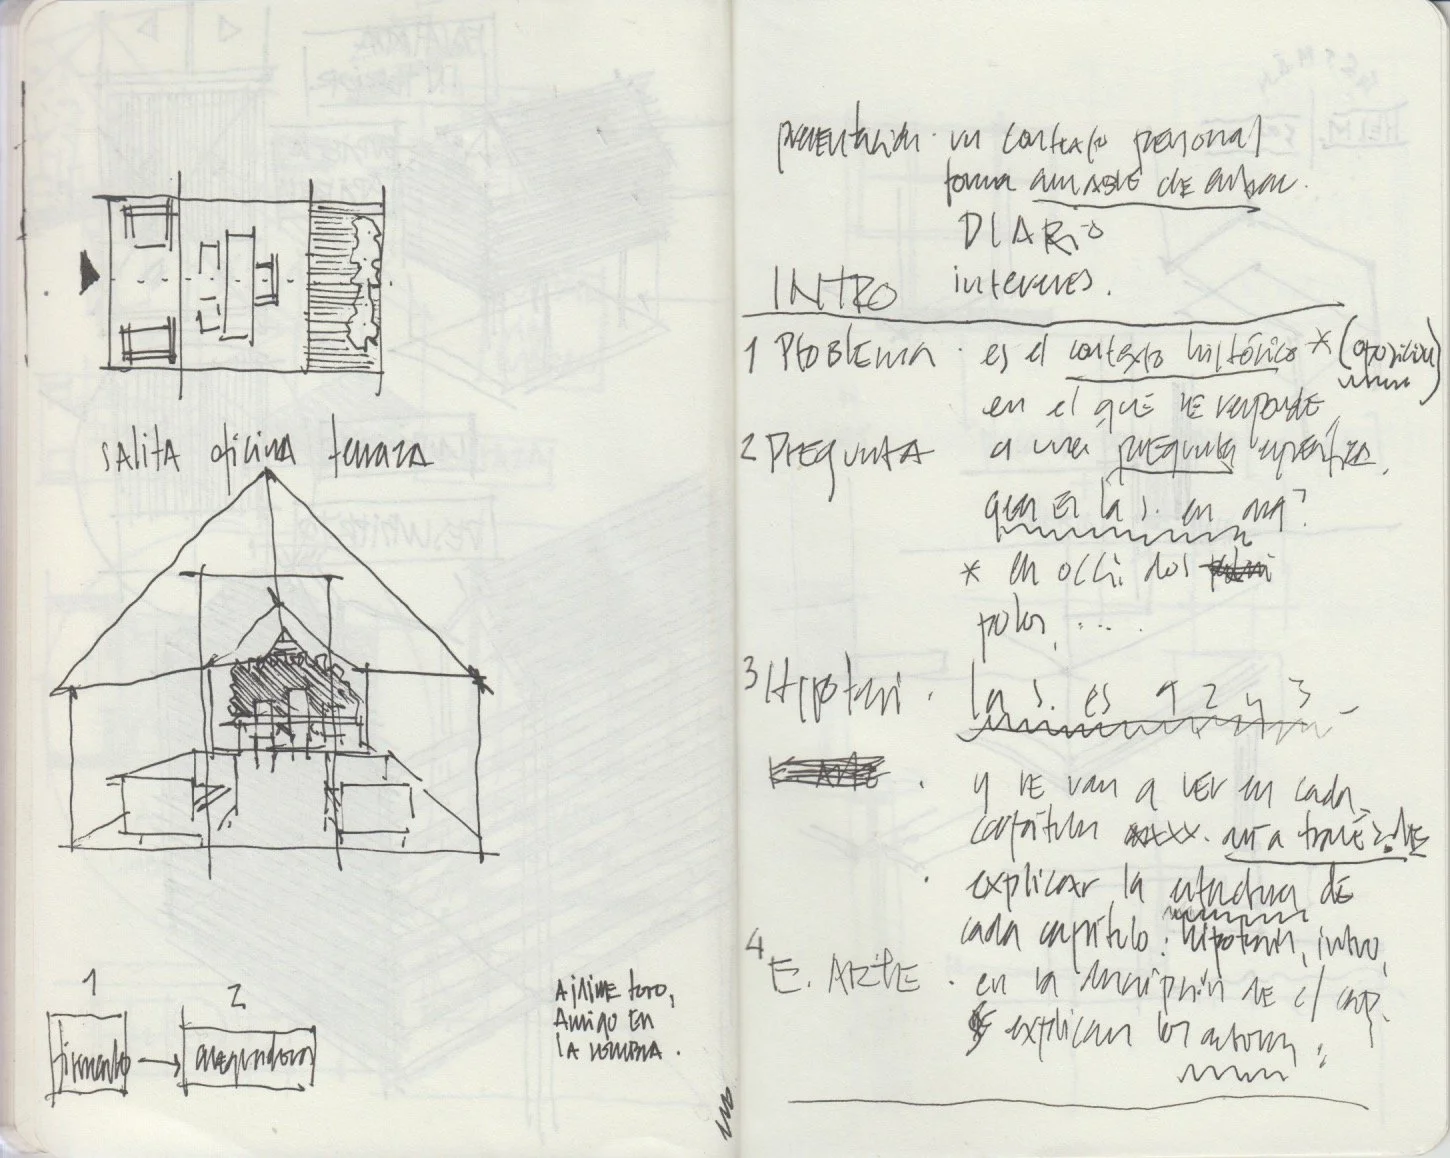 salita oficina terraza
1
2
aseguradora
Amigo en
la sombra.
presentación. un contexto personal
forma amable de
DIARIO
intereses.
INTRO
1 Problema. es el contexto histórico * (oposición)
en el que se responde
2 Pregunta a una pregunta
que es la s. en
* en occi. dos
polos, ....
3 Hipótesis. la s. es 1 2 y 3
. y se van a ver en cada
capítulo a través de
. explicar la estructura de
cada capítulo: hipótesis, intro,
4 E. ARTE. en la descripción de c/ cap.
se explican los autores: